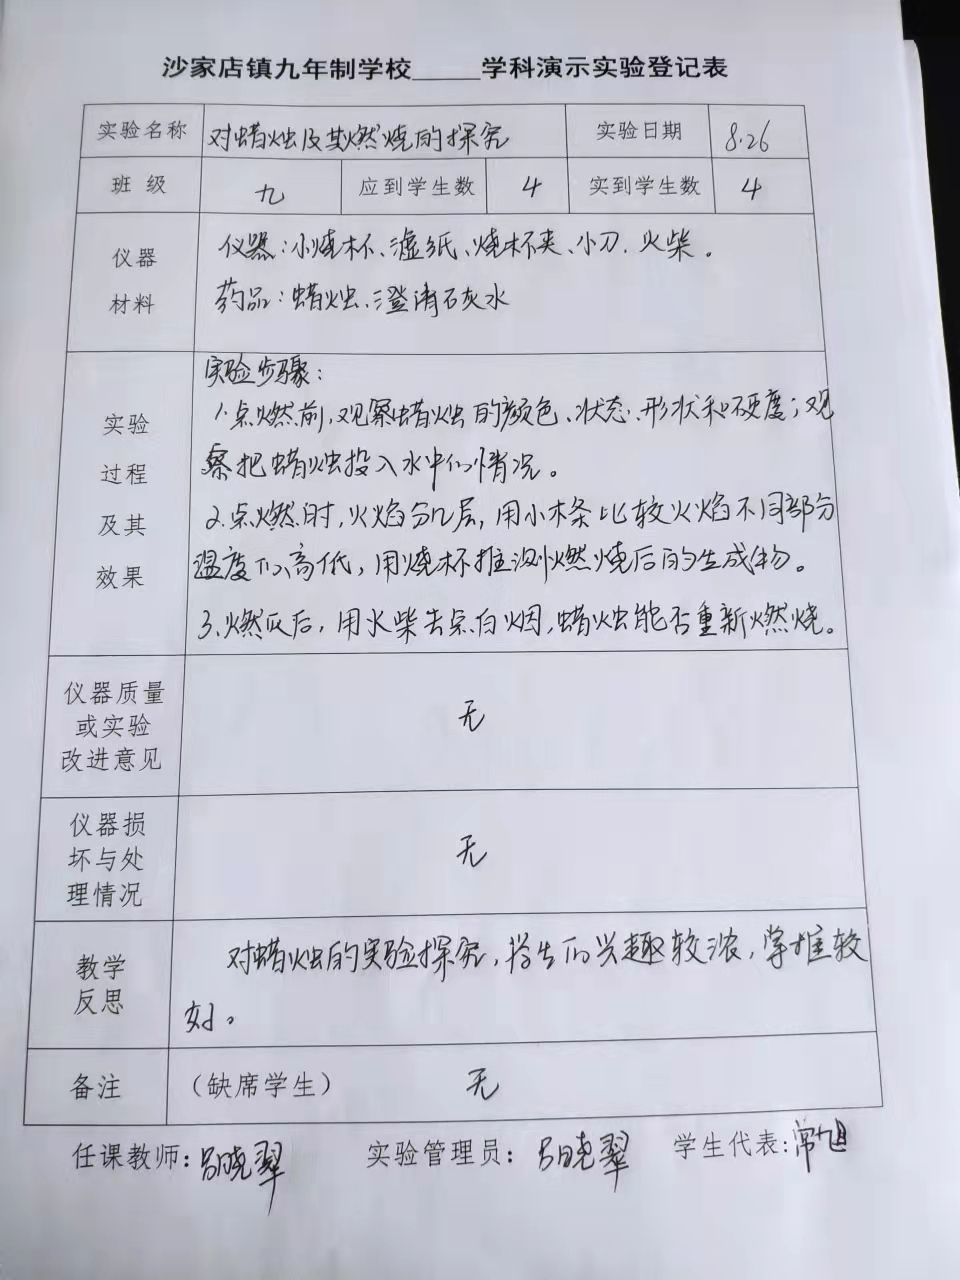 沙家店镇九年制学校_____学科演示实验登记表
实验名称 对蜡烛及其燃烧的探究 实验日期 8.26
班 级 九 应到学生数 4 实到学生数 4
仪器
材料
仪器:小烧杯、滤纸、烧杯夹、小刀.火柴。
药品:蜡烛、澄清石灰水
实验
过程
及其
效果
实验步骤:
1.点燃前,观察蜡烛的颜色、状态、形状和硬度;观
察把蜡烛投入水中的情况。
2.点燃时,火焰分几层,用小木条比较火焰不同部分
温度的高低,用烧杯推测燃烧后的生成物。
3.燃灭后,用火柴去点白烟,蜡烛能否重新燃烧。
仪器质量
或实验
改进意见
无
仪器损
坏与处
理情况
无
教学
反思
对蜡烛的实验探究,学生的兴趣较浓,掌握较
好。
备注 (缺席学生) 无
任课教师:吕晓翠 实验管理员:吕晓翠 学生代表:常旭